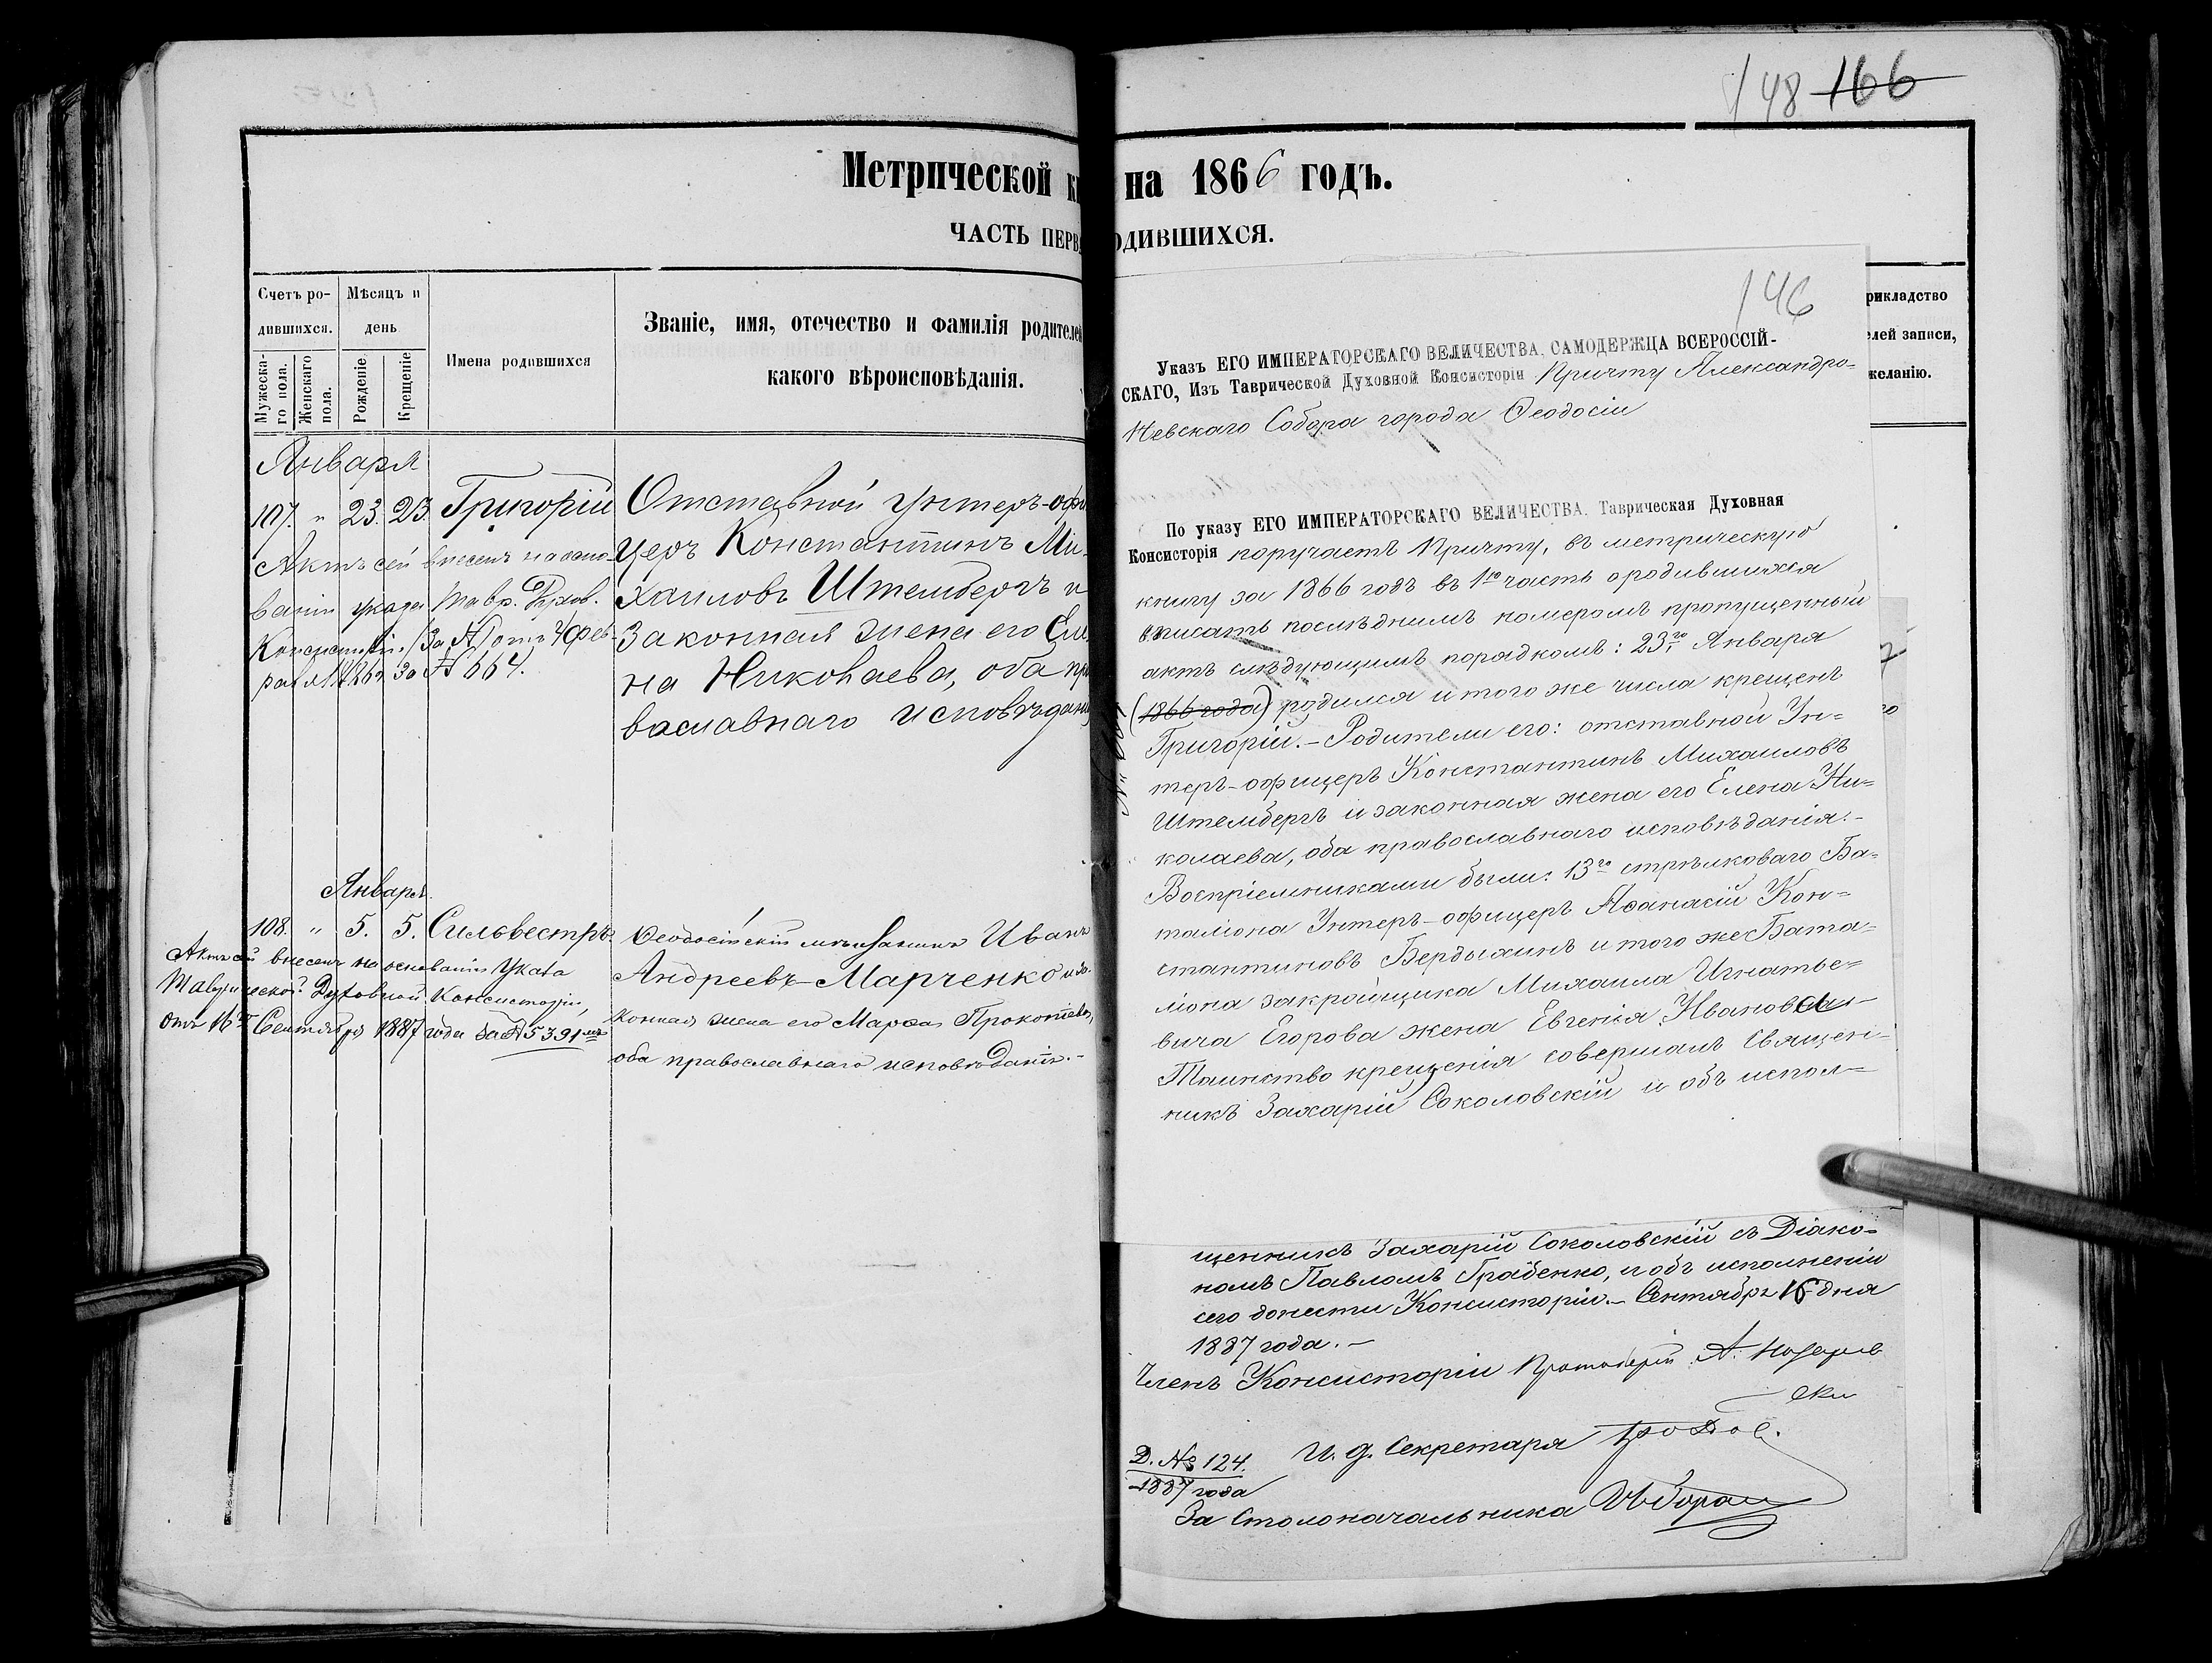 148 166
Метрической на 1866 годъ.
ЧАСТЬ ОДИВШИХСЯ.
Счетъ ро-
дившихся.
Мѣсяцъ и
день
Мужеска-
го пола.
Женскаго
пола.
Рожденіе
Крещеніе
Имена родившихся
Званіе, имя, отечество и фамилія родителей
какого вѣроисповѣданія.
Января
107. " 23. 23. Григорій
Актъ сей внесенъ на осно-
ваніи указа Тавр. Духов.
Консисторіи
664.
Отставной унтеръ-офи
церъ Константинъ Ми-
хаиловъ Штембергъ и
законная жена его Еле
на Николаева, оба пра
вославнаго исповѣдані
Января
108. " 5. 5. Сильвестръ
Актъ сей внесенъ на основаніи Указа
Таврической Духовной Консисторіи,
отъ 16го Сентября 1887 года за № 5391мъ
Ѳеодосійскій мѣщанинъ Иванъ
Андреевъ Марченко и за-
конная жена его Марѳа Прокопіева,
оба православнаго исповѣданія.-
рикладство
елей записи,
желанію.
146
Указъ ЕГО ИМПЕРАТОРСКАГО ВЕЛИЧЕСТВА, САМОДЕРЖЦА ВСЕРОССІЙ-
СКАГО, Изъ Таврической Духовной Консисторіи Причту Александро=
Невскаго Собора города Ѳеодосіи
По указу ЕГО ИМПЕРАТОРСКАГО ВЕЛИЧЕСТВА, Таврическая Духовная
Консисторія поручаетъ Причту, въ метрическую
книгу за 1866 годъ въ 1ю часть о родившихся
вписать послѣднимъ номеромъ пропущенный
актъ слѣдующимъ порядкомъ: 23го Января
(1866 года) родился и того же числа крещенъ
Григорій.- Родители его: отставной Ун=
теръ-офицеръ Константинъ Михаиловъ
Штембергъ и законная жена его Елена Ни=
колаева, оба православнаго исповѣданія.-
Воспріемниками были: 13го стрѣлковаго Ба=
таліона Унтеръ-офицеръ Аѳанасій Кон=
стантиновъ Бердыхинъ и того же Бата=
ліона закройщика Михаила Игнатье=
вича Егорова жена Евгенія Иванова
Таинство крещенія совершалъ Священ-
никъ Захарій Соколовскій и объ испол-
щенникъ Захарій Соколовскій съ Діако=
номъ Павломъ Грабенко, и объ исполненіи
сего донести Консисторіи.- Сентября 16 дня
1887 года.-
Членъ Консисторіи Протоіерей А. Назарев
ски
И. д. Секретаря
Д. № 124.
1887 года
За Столоначальника